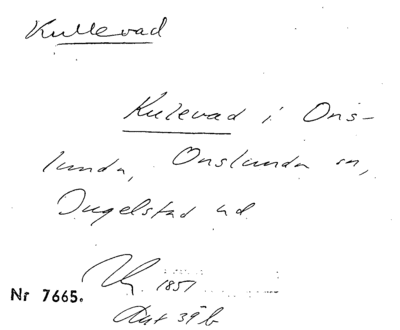 Kullevad
Kulevad i Ons-
lunda, Onslunda sn,
Ingelstad hd
1851
Nr 7665.
Akt 39 b